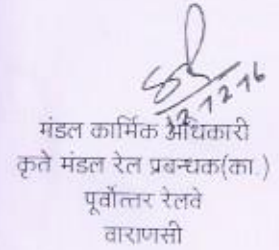 मंडल कार्मिक अधिकारी
कृते मंडल रेल प्रबन्धक(का.)
पूर्वोत्तर रेलवे
वाराणसी